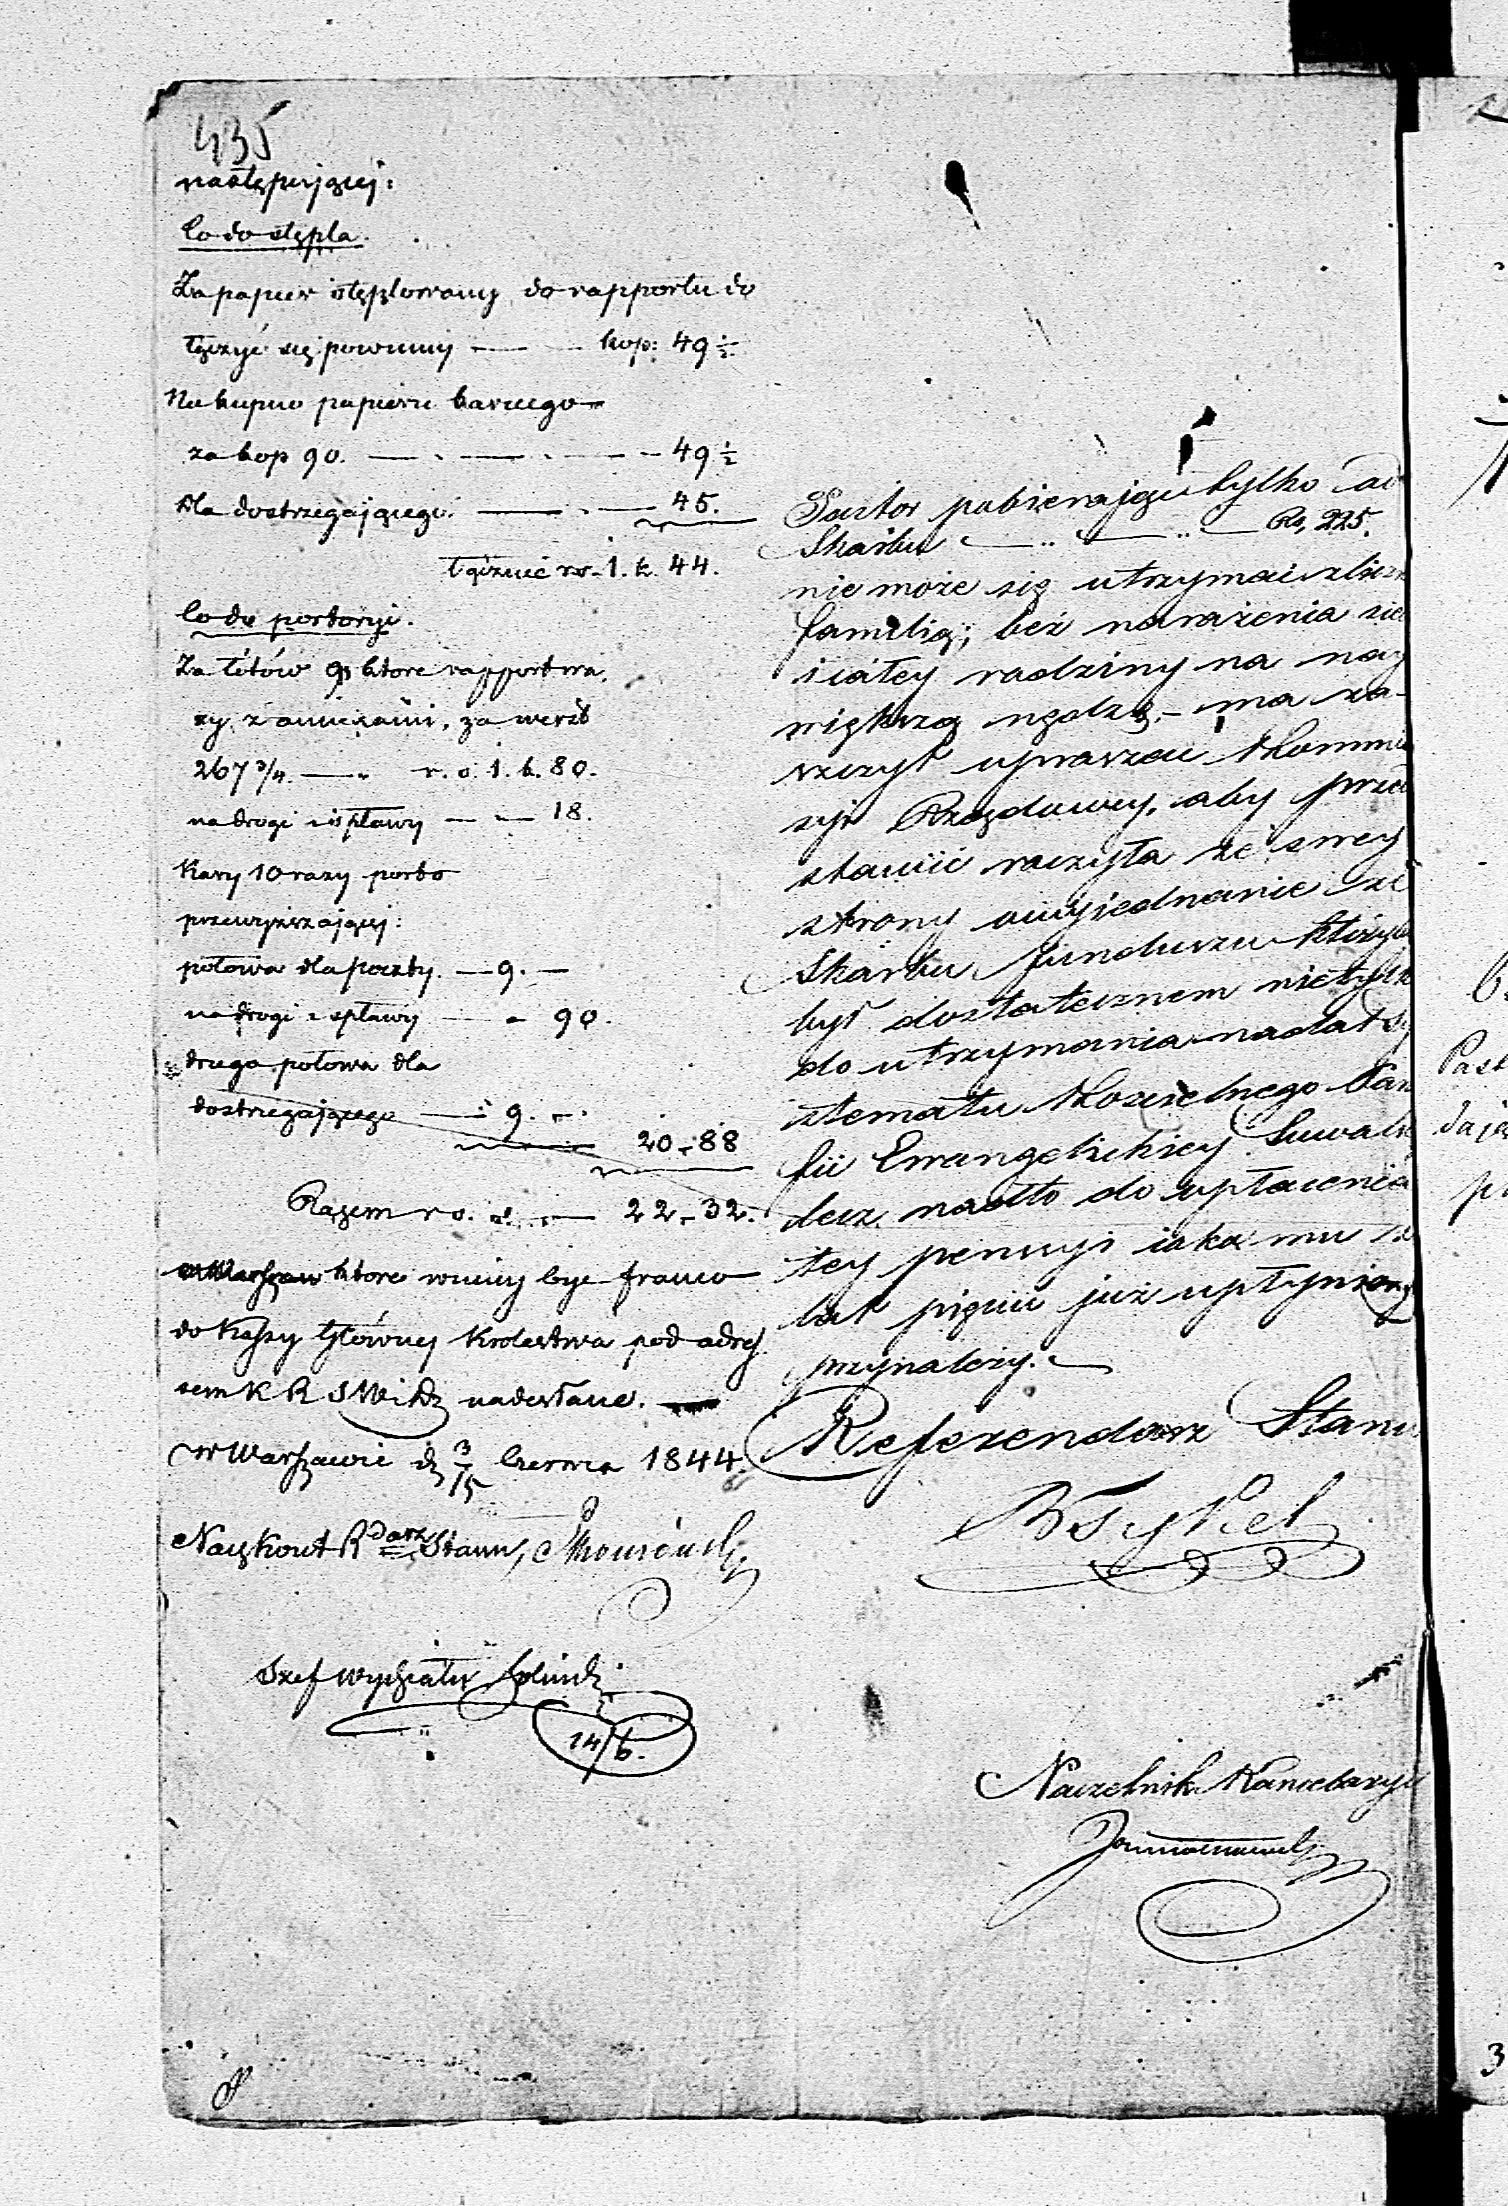 435
następującej:
Co do stępla.
Za papier stęplowany do rapportu do
łączyć się powinny — kop: 49 ½
Na kupno papieru karnego
za kop 90. — 49 ½
Dla dostrzegającego. — 45.
łącznie rs. 1. k. 44.
Co do portoryi.
Za łótów 9, które rapport wa,
ży z annexami, za werst
267 ¾. — r. s. 1. k. 80.
na drogi i spławy — 18.
Kary 10 razy porto
przewyższającej:
połowa dla poczty. — 9. —
na drogi i spławy — 90.
druga połowa dla
dostrzegającego — 9. —
20 - 88
Razem rs. — 22 - 32.
które winny bydź franco
do Kassy Głównej Królestwa pod adres
sem K R S W i D nadesłane. —
w Warszawie d 3/15 Czerwca 1844
Szef Wydziału
14/6.
Pastor pobierając tylko
Skarbu — Rs, 225.
nie może się utrzymać z liczn
familią; bez narażenia sie
i całey rodziny na nay
większą nędzę, — ma za-
szczyt upraszać Kommis
syi Rządowey, aby przed
stawić raczyła ze swey
strony o wyiednanie ze
Skarbu funduszu któryby
był dostatecznem nietylk
do utrzymania nadal sy
stematu Kościelnego Para
fii Ewangelickiey Suwałk
lecz nadto do wypłacenia
tey pensyi iaka mu za
lat pięciu już upłynion
przynależy. —
Referendarz Stanu
Naczelnik Kancellaryi
Past
3